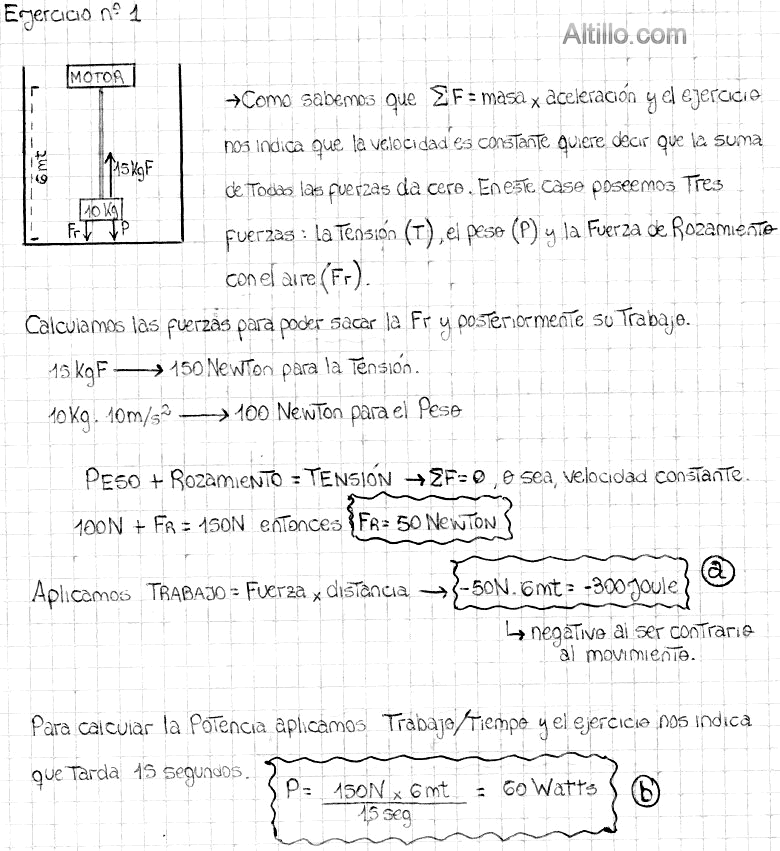 Ejercicio nº 1
Altillo.com
MOTOR
6 mt
15 KgF
10 Kg
Fr
P
→ Como sabemos que ΣF = masa x aceleración y el ejercicio
nos indica que la velocidad es constante quiere decir que la suma
de Todas las fuerzas da cero. En este caso poseemos Tres
fuerzas: la Tensión (T), el peso (P) y la Fuerza de Rozamiento
con el aire (Fr).
Calculamos las fuerzas para poder sacar la Fr y posteriormente su Trabajo.
15 KgF → 150 Newton para la Tensión.
10 Kg . 10 m/s² → 100 Newton para el Peso
PESO + ROZAMIENTO = TENSIÓN → ΣF = 0, o sea, velocidad constante.
100N + FR = 150N entonces FR = 50 NEWTON
Aplicamos TRABAJO = Fuerza x distancia → -50N . 6mt = -300 Joule a
↳ negativo al ser contrario
al movimiento.
Para calcular la Potencia aplicamos Trabajo/Tiempo y el ejercicio nos indica
que Tarda 15 segundos.
P = 150N x 6 mt / 15 seg = 60 Watts b